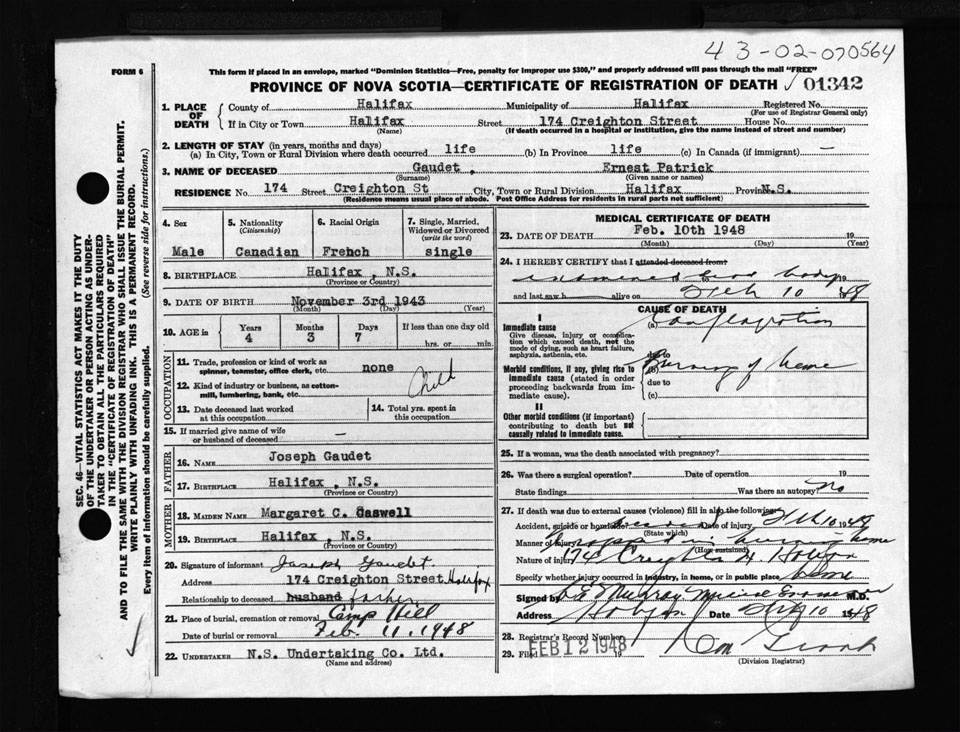 43-02-070564
FORM 6
This form if placed in an envelope, marked "Dominion Statistics—Free, penalty for improper use $300," and properly addressed will pass through the mail "FREE"
PROVINCE OF NOVA SCOTIA—CERTIFICATE OF REGISTRATION OF DEATH 01342
SEC. 46—VITAL STATISTICS ACT MAKES IT THE DUTY
OF THE UNDERTAKER OR PERSON ACTING AS UNDER-
TAKER TO OBTAIN ALL THE PARTICULARS REQUIRED
IN THE "CERTIFICATE OF REGISTRATION OF DEATH"
AND TO FILE THE SAME WITH THE DIVISION REGISTRAR WHO SHALL ISSUE THE BURIAL PERMIT.
WRITE PLAINLY WITH UNFADING INK. THIS IS A PERMANENT RECORD.
Every item of information should be carefully supplied. (See reverse side for instructions.)
1. PLACE OF DEATH County of Halifax Municipality of Halifax Registered No.
(For use of Registrar General only)
If in City or Town Halifax Street 174 Creighton Street House No.
(Name) (If death occurred in a hospital or institution, give the name instead of street and number)
2. LENGTH OF STAY (in years, months and days)
(a) In City, Town or Rural Division where death occurred life (b) In Province life (c) In Canada (if immigrant) —
3. NAME OF DECEASED Gaudet, Ernest Patrick
(Surname) (Given name or names)
RESIDENCE No. 174 Street Creighton St City, Town or Rural Division Halifax Province N.S.
(Residence means usual place of abode. Post Office Address for residents in rural parts not sufficient)
4. Sex 5. Nationality (Citizenship) 6. Racial Origin 7. Single, Married, Widowed or Divorced (write the word)
Male Canadian French single
8. BIRTHPLACE Halifax, N.S.
(Province or Country)
9. DATE OF BIRTH November 3rd 1943
(Month) (Day) (Year)
10. AGE in Years Months Days If less than one day old
4 3 7 hrs. or min.
OCCUPATION
11. Trade, profession or kind of work as spinner, teamster, office clerk, etc. none
12. Kind of industry or business, as cotton-mill, lumbering, bank, etc. Child
13. Date deceased last worked at this occupation 14. Total yrs. spent in this occupation
15. If married give name of wife or husband of deceased —
FATHER
16. NAME Joseph Gaudet
17. BIRTHPLACE Halifax, N.S.
(Province or Country)
MOTHER
18. MAIDEN NAME Margaret C. Caswell
19. BIRTHPLACE Halifax, N.S.
(Province or Country)
20. Signature of informant Joseph Gaudet.
Address 174 Creighton Street Halifax
Relationship to deceased husband father
21. Place of burial, cremation or removal Camp Hill
Date of burial or removal Feb. 11. 1948
22. UNDERTAKER N.S. Undertaking Co. Ltd.
(Name and address)
MEDICAL CERTIFICATE OF DEATH
23. DATE OF DEATH Feb. 10th 1948 19
(Month) (Day) (Year)
24. I HEREBY CERTIFY that I attended deceased from:
examined dead body 19
and last saw h alive on Feb 10 1948
CAUSE OF DEATH
I
Immediate cause (a) Conflagration
Give disease, injury or complication which caused death, not the mode of dying, such as heart failure, asphyxia, asthenia, etc.
Morbid conditions, if any, giving rise to immediate cause (stated in order proceeding backwards from immediate cause). Burning of home
due to
(c)
II
Other morbid conditions (if important) contributing to death but not causally related to immediate cause.
25. If a woman, was the death associated with pregnancy?
26. Was there a surgical operation? Date of operation 19
State findings Was there an autopsy? No
27. If death was due to external causes (violence) fill in also the following:
Accident, suicide or homicide? Date of injury Feb 10 1948
(State which)
Manner of injury Trapped in burning home
(How sustained)
Nature of injury 174 Creighton St. Halifax
Specify whether injury occurred in industry, in home, or in public place home
Signed by Murray Medical Examiner M.D.
Address Halifax Date Feb 10 1948
28. Registrar's Record Number
29. Filed FEB 12 1948 19
(Division Registrar)